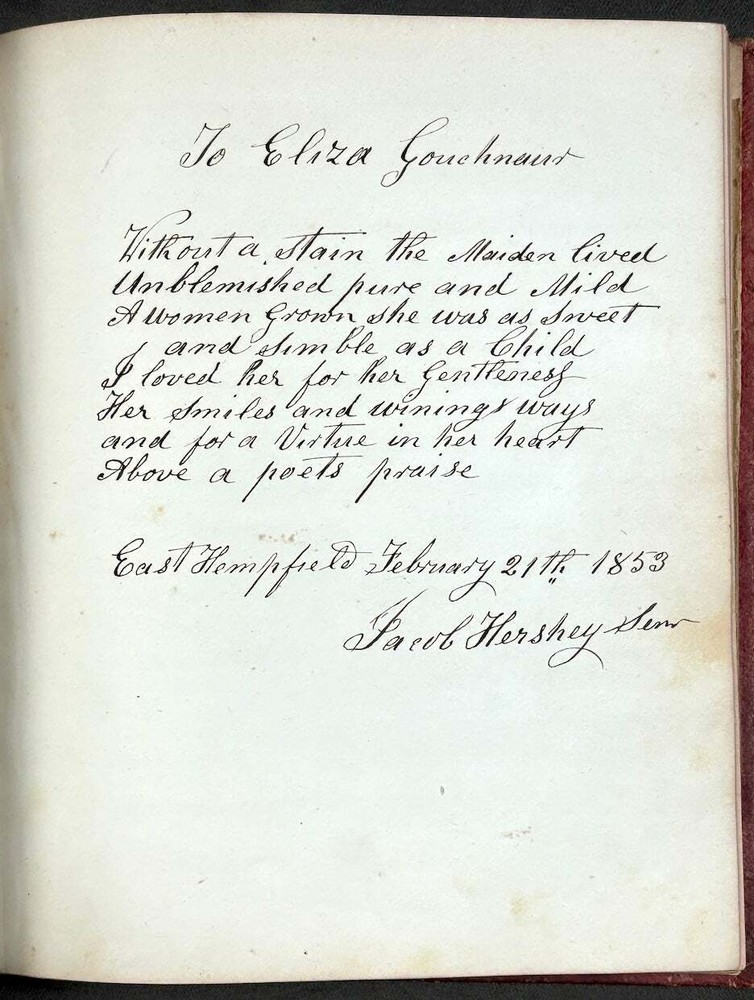 To Eliza Gouchnaur
Without a stain the Maiden lived
Unblemished pure and Mild
A women Grown she was as sweet
and simble as a Child
I loved her for her Gentleness
Her smiles and winings ways
and for a Virtue in her heart
Above a poets praise
East Hempfield February 21th 1853
Jacob Hershey Senr